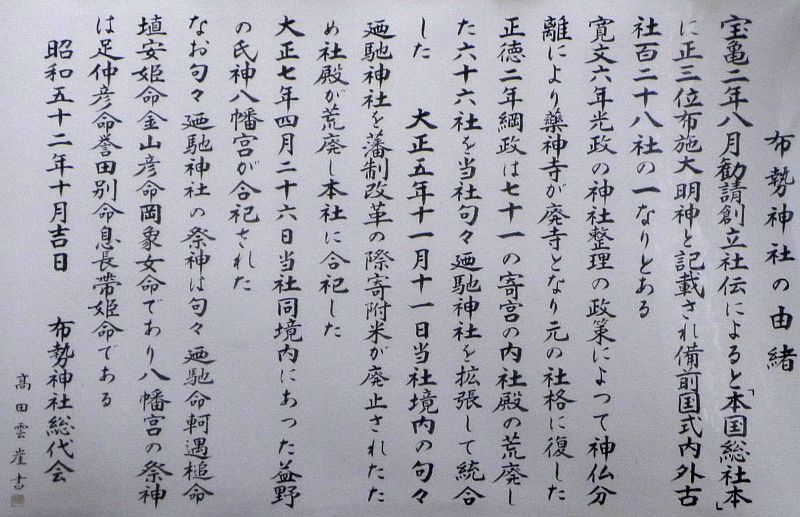 布勢神社の由緒
宝亀二年八月勧請創立社伝によると「本国総社本」
に正三位布施大明神と記載され備前国式内外古
社百二十八社の一なりとある
寛文六年光政の神社整理の政策によつて神仏分
離により藥神寺が廃寺となり元の社格に復した
正徳二年綱政は七十一の寄宮の内社殿の荒廃し
た六十六社を当社句々廼馳神社を拡張して統合
した　大正五年十一月十一日当社境内の句々
廼馳神社を藩制改革の際寄附米が廃止されたた
め社殿が荒廃し本社に合祀した
大正七年四月二十六日当社同境内にあった益野
の氏神八幡宮が合祀された
なお句々廼馳神社の祭神は句々廼馳命軻遇槌命
埴安姫命金山彦命岡象女命であり八幡宮の祭神
は足仲彦命誉田別命息長帯姫命である
昭和五十二年十月吉日　布勢神社総代会
髙田雲崖書